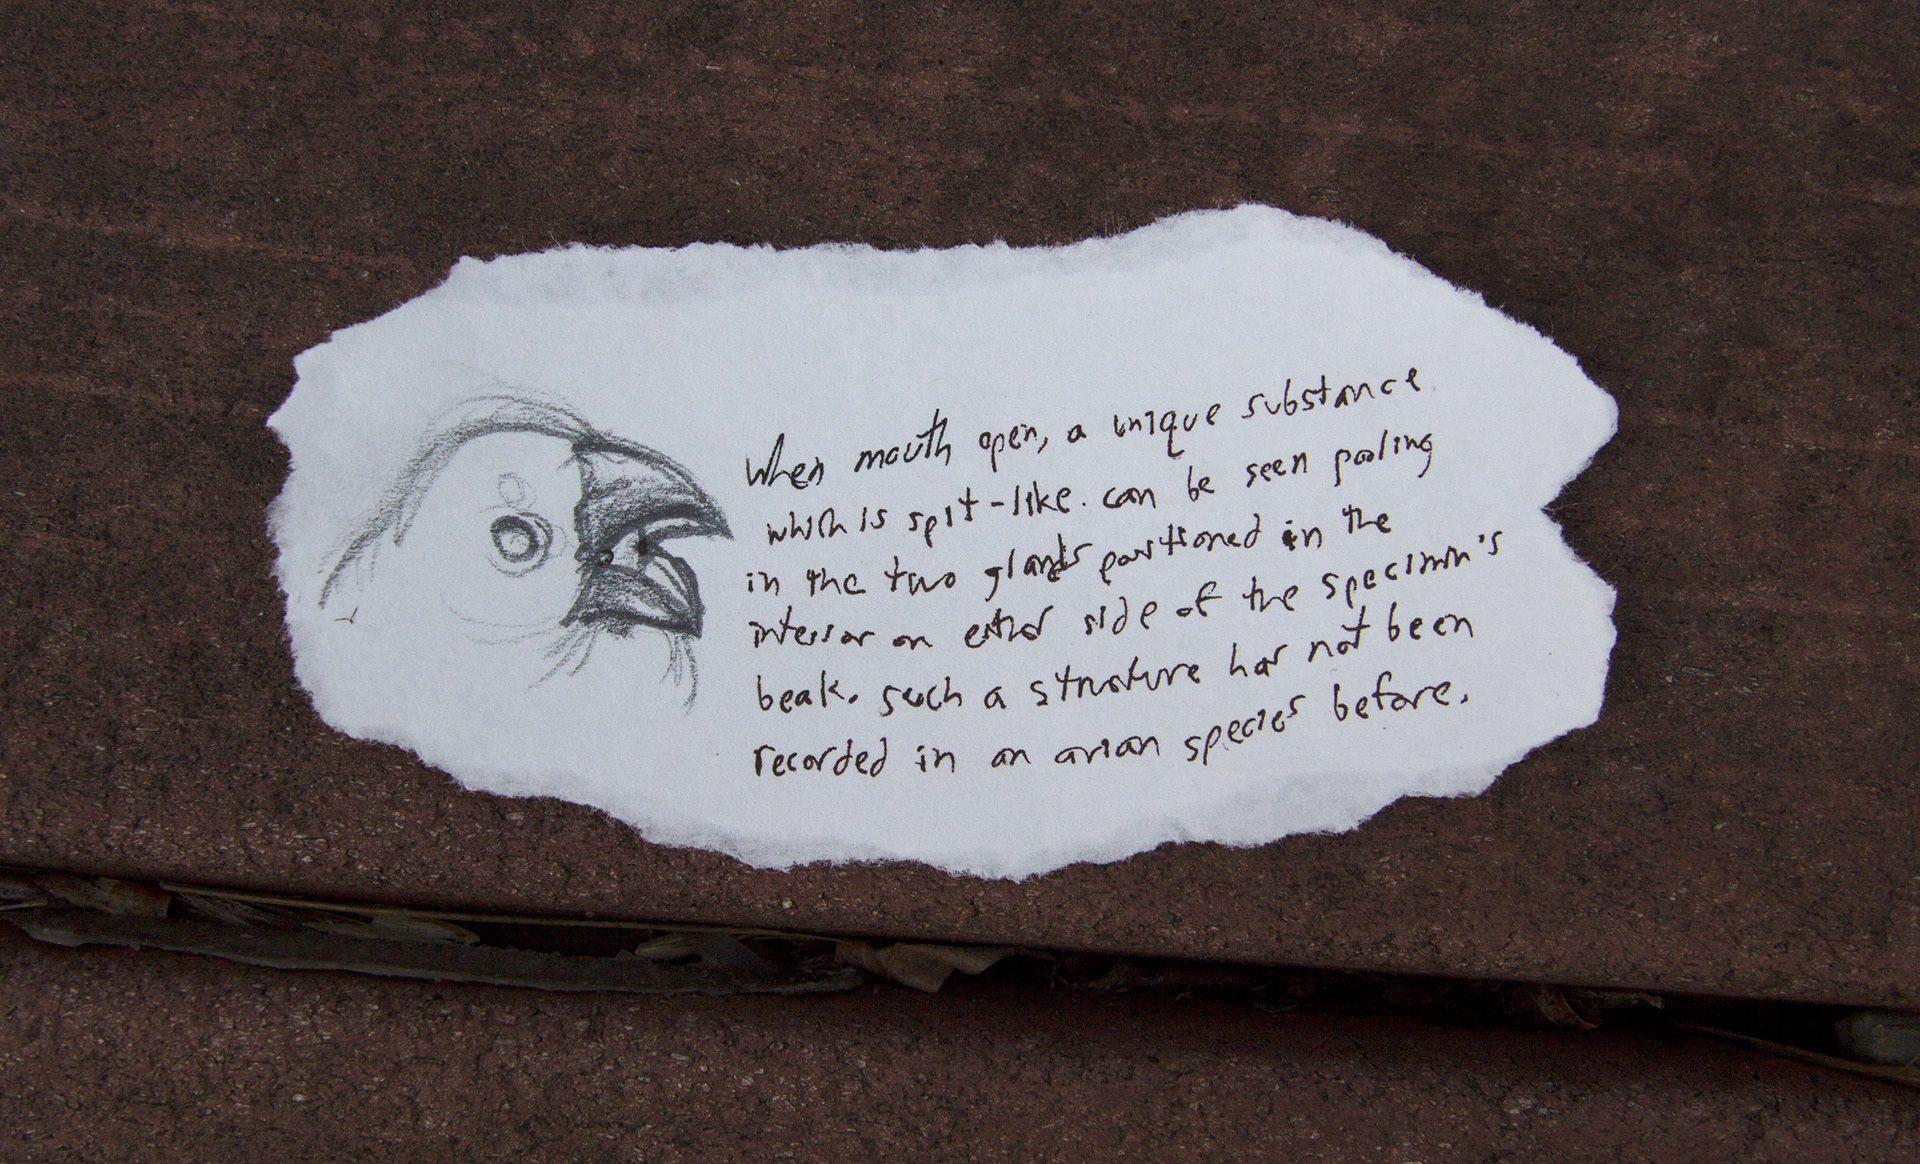 When mouth open, a unique substance
which is spit-like. can be seen pooling
in the two glands positioned in the
interior on either side of the specimen's
beak. such a structure has not been
recorded in an avian species before.